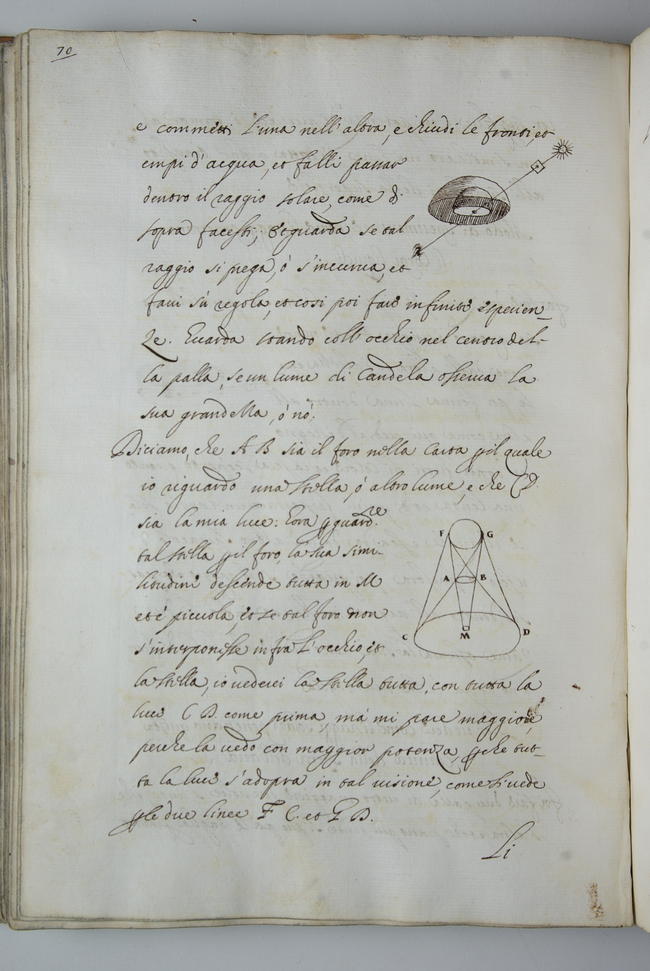 70
e commetti l'una nell'altra, e chiudi le fronti, et
empi d'acqua, et falli passar
dentro il raggio solare, come di
sopra facesti, et guarda se tal
raggio si piega, ò s'incurva, et
favi sù regola, et così poi farai infinite esperien-
ze. Guarda stando coll'occhio nel centro del-
la palla, se un lume di Candela osserva la
sua grandezza, ò nò.
Diciamo, che A B sia il foro nella Carta pil quale
io riguardo una stella, ò altro lume, e che C D
sia la mia luce: hora pguardre
tal stella pil foro, la sua simi-
litudine descende tutta in M
et è piccola et se tal foro non
s'interponesse infra l'occhio, et
la stella, io vederei la stella tutta, con tutta la
luce C D. come prima mà mi pare maggiore,
perche la vedo con maggior potenza, pche tut-
ta la luce s'adopra in tal visione, come si vede
ple due linee F C. et G D.
Li
F G
A B
C M D